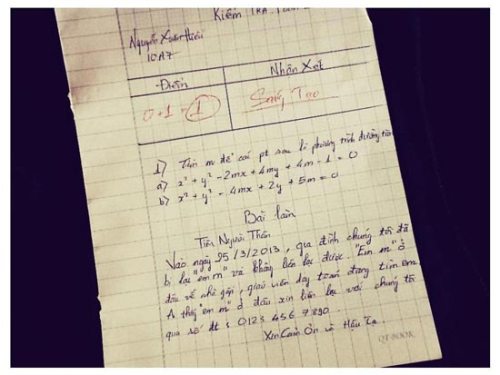 Kiểm Tra Toán
Nguyễn Xuân Hiếu
10A7
Điểm
Nhận Xét
0+1 = 1
Sáng Tạo
1) Tìm m để các pt sau là phương trình đường tròn
a) x² + y² - 2mx + 4my + 4m - 1 = 0
b) x² + y² - 4mx + 2y + 5m = 0
Bài làm
Tìm Người Thân
Vào ngày 25/3/2013, gia đình chúng tôi đã
bị lạc "em m" và không liên lạc được. "Em m" ở
đâu về nhé gấp, giáo viên dạy toán đang tìm em
A thấy "em m" ở đâu xin liên lạc với chúng tôi
qua số đt : 0123 456 7890
Xin Cảm Ơn và Hậu Tạ